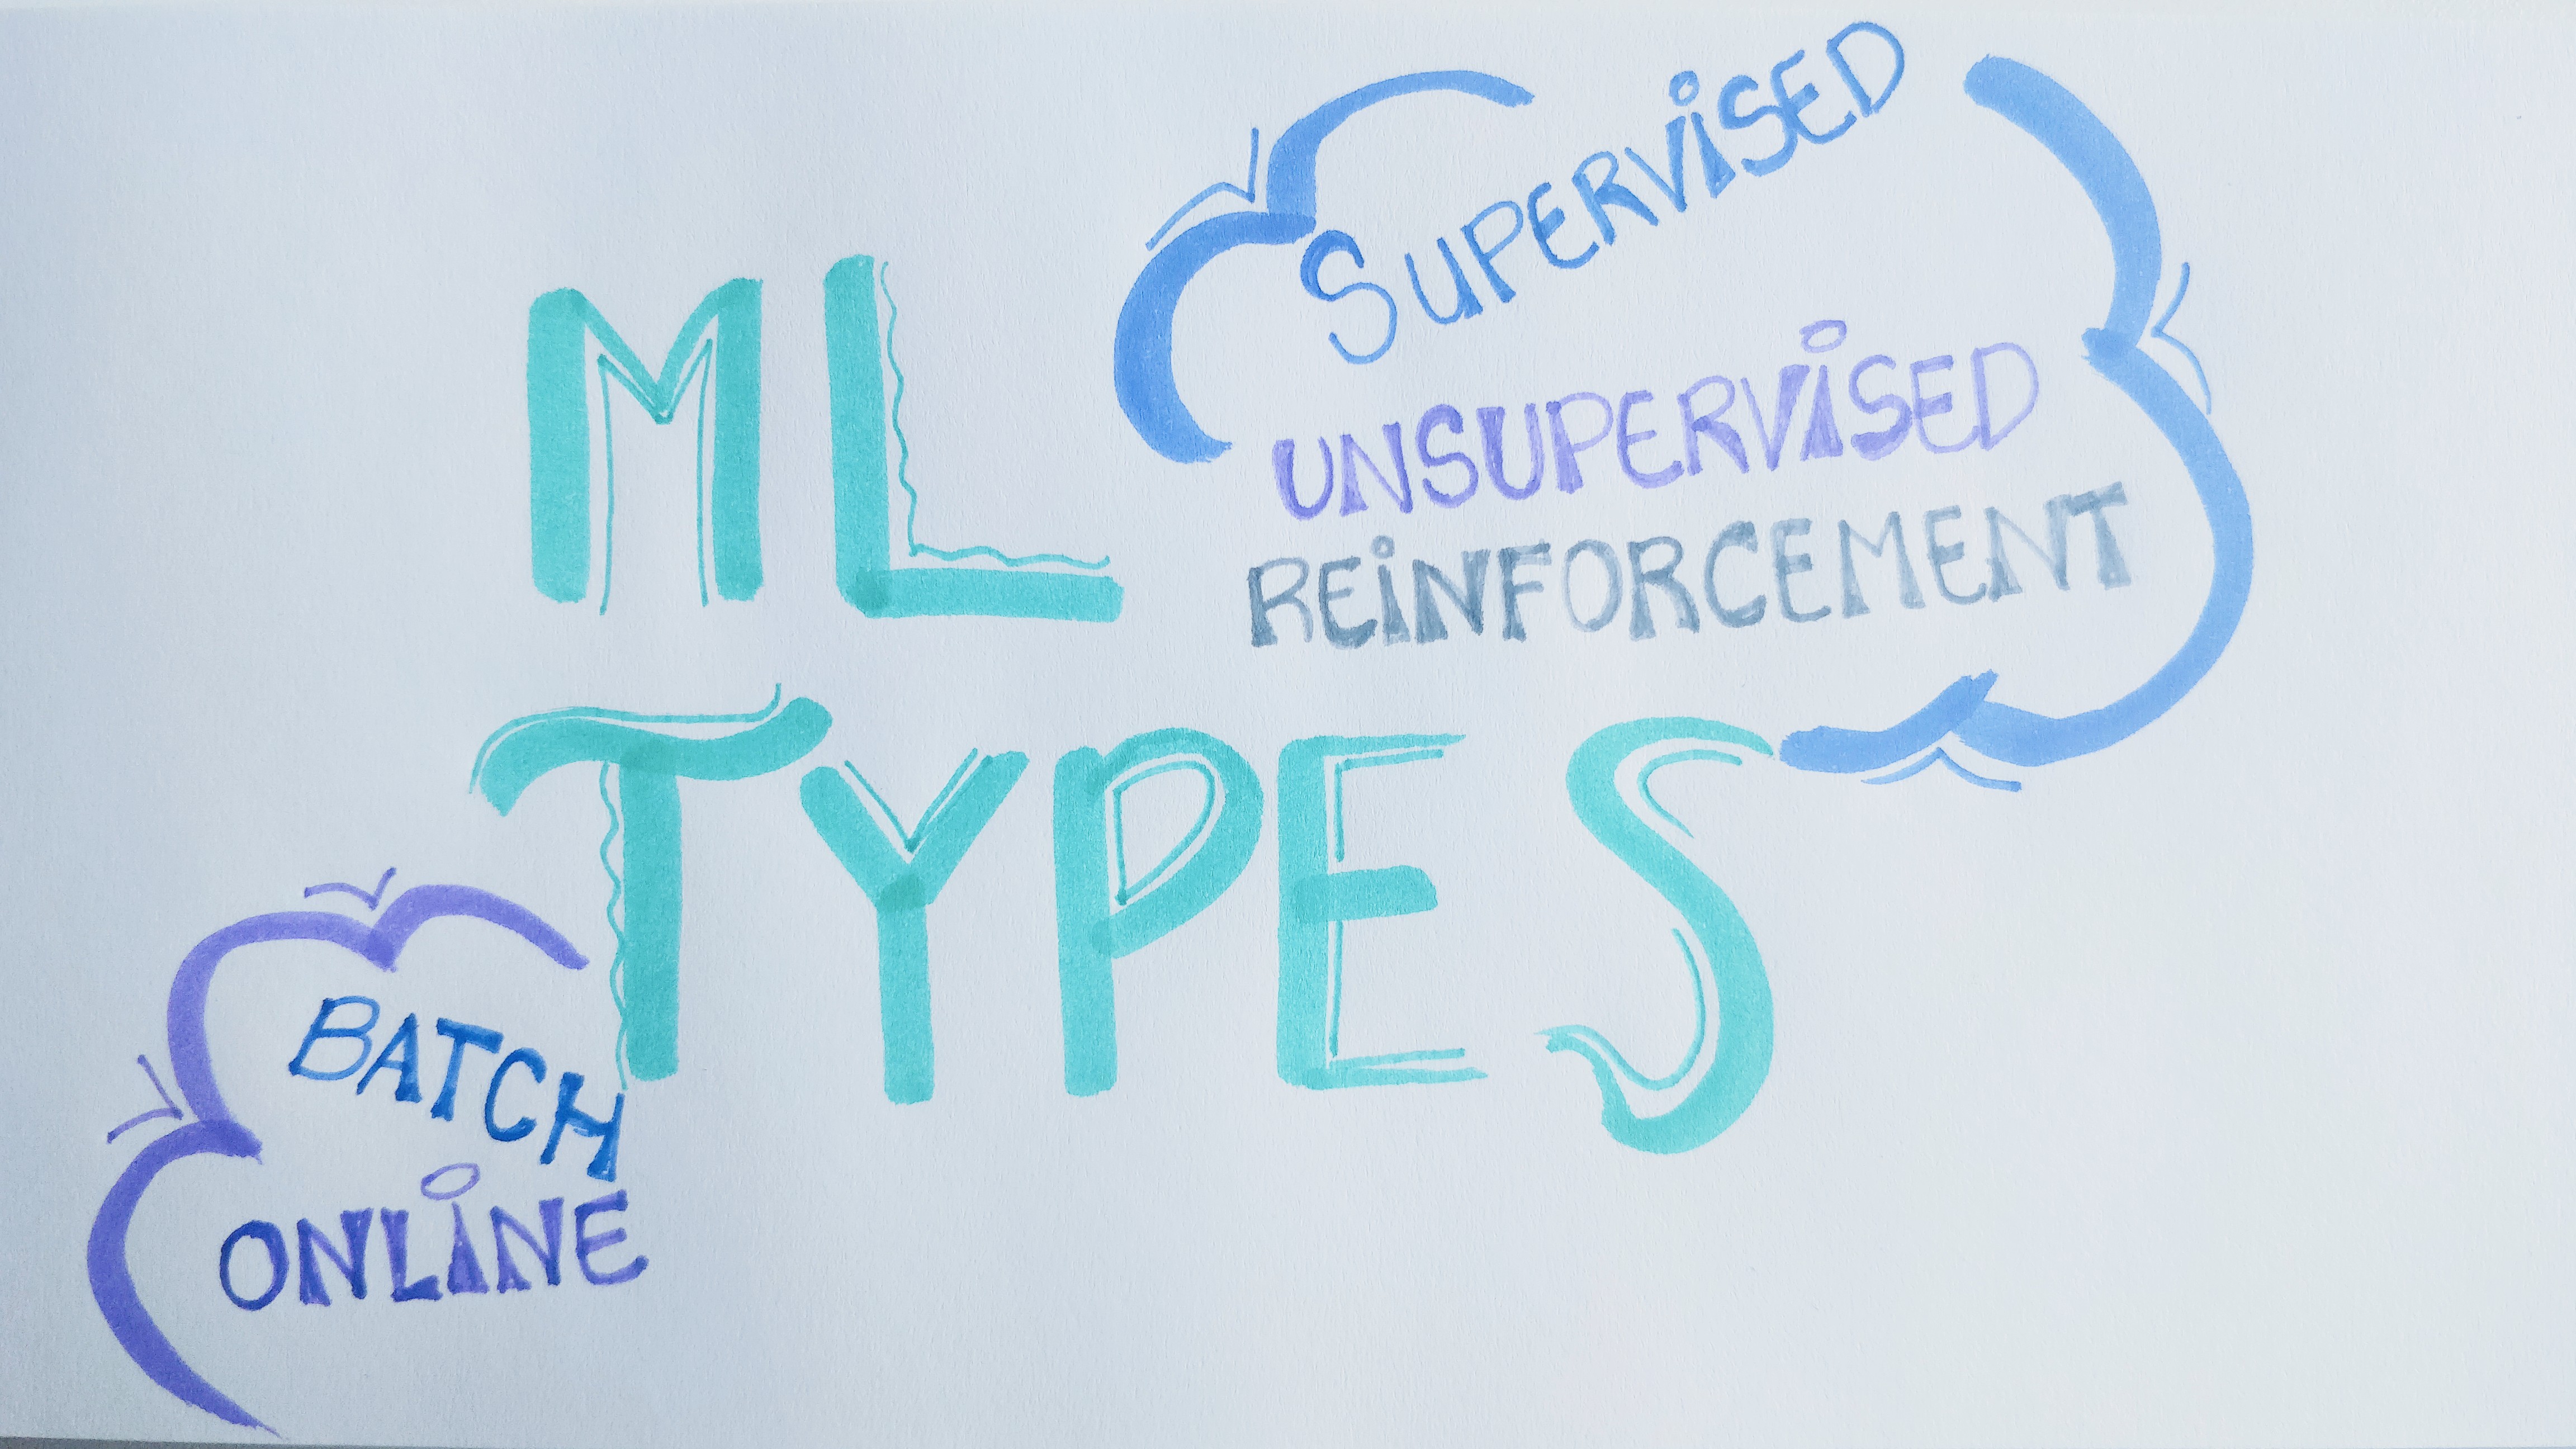 ML
SUPERVISED
UNSUPERVISED
REINFORCEMENT
TYPES
BATCH
ONLINE